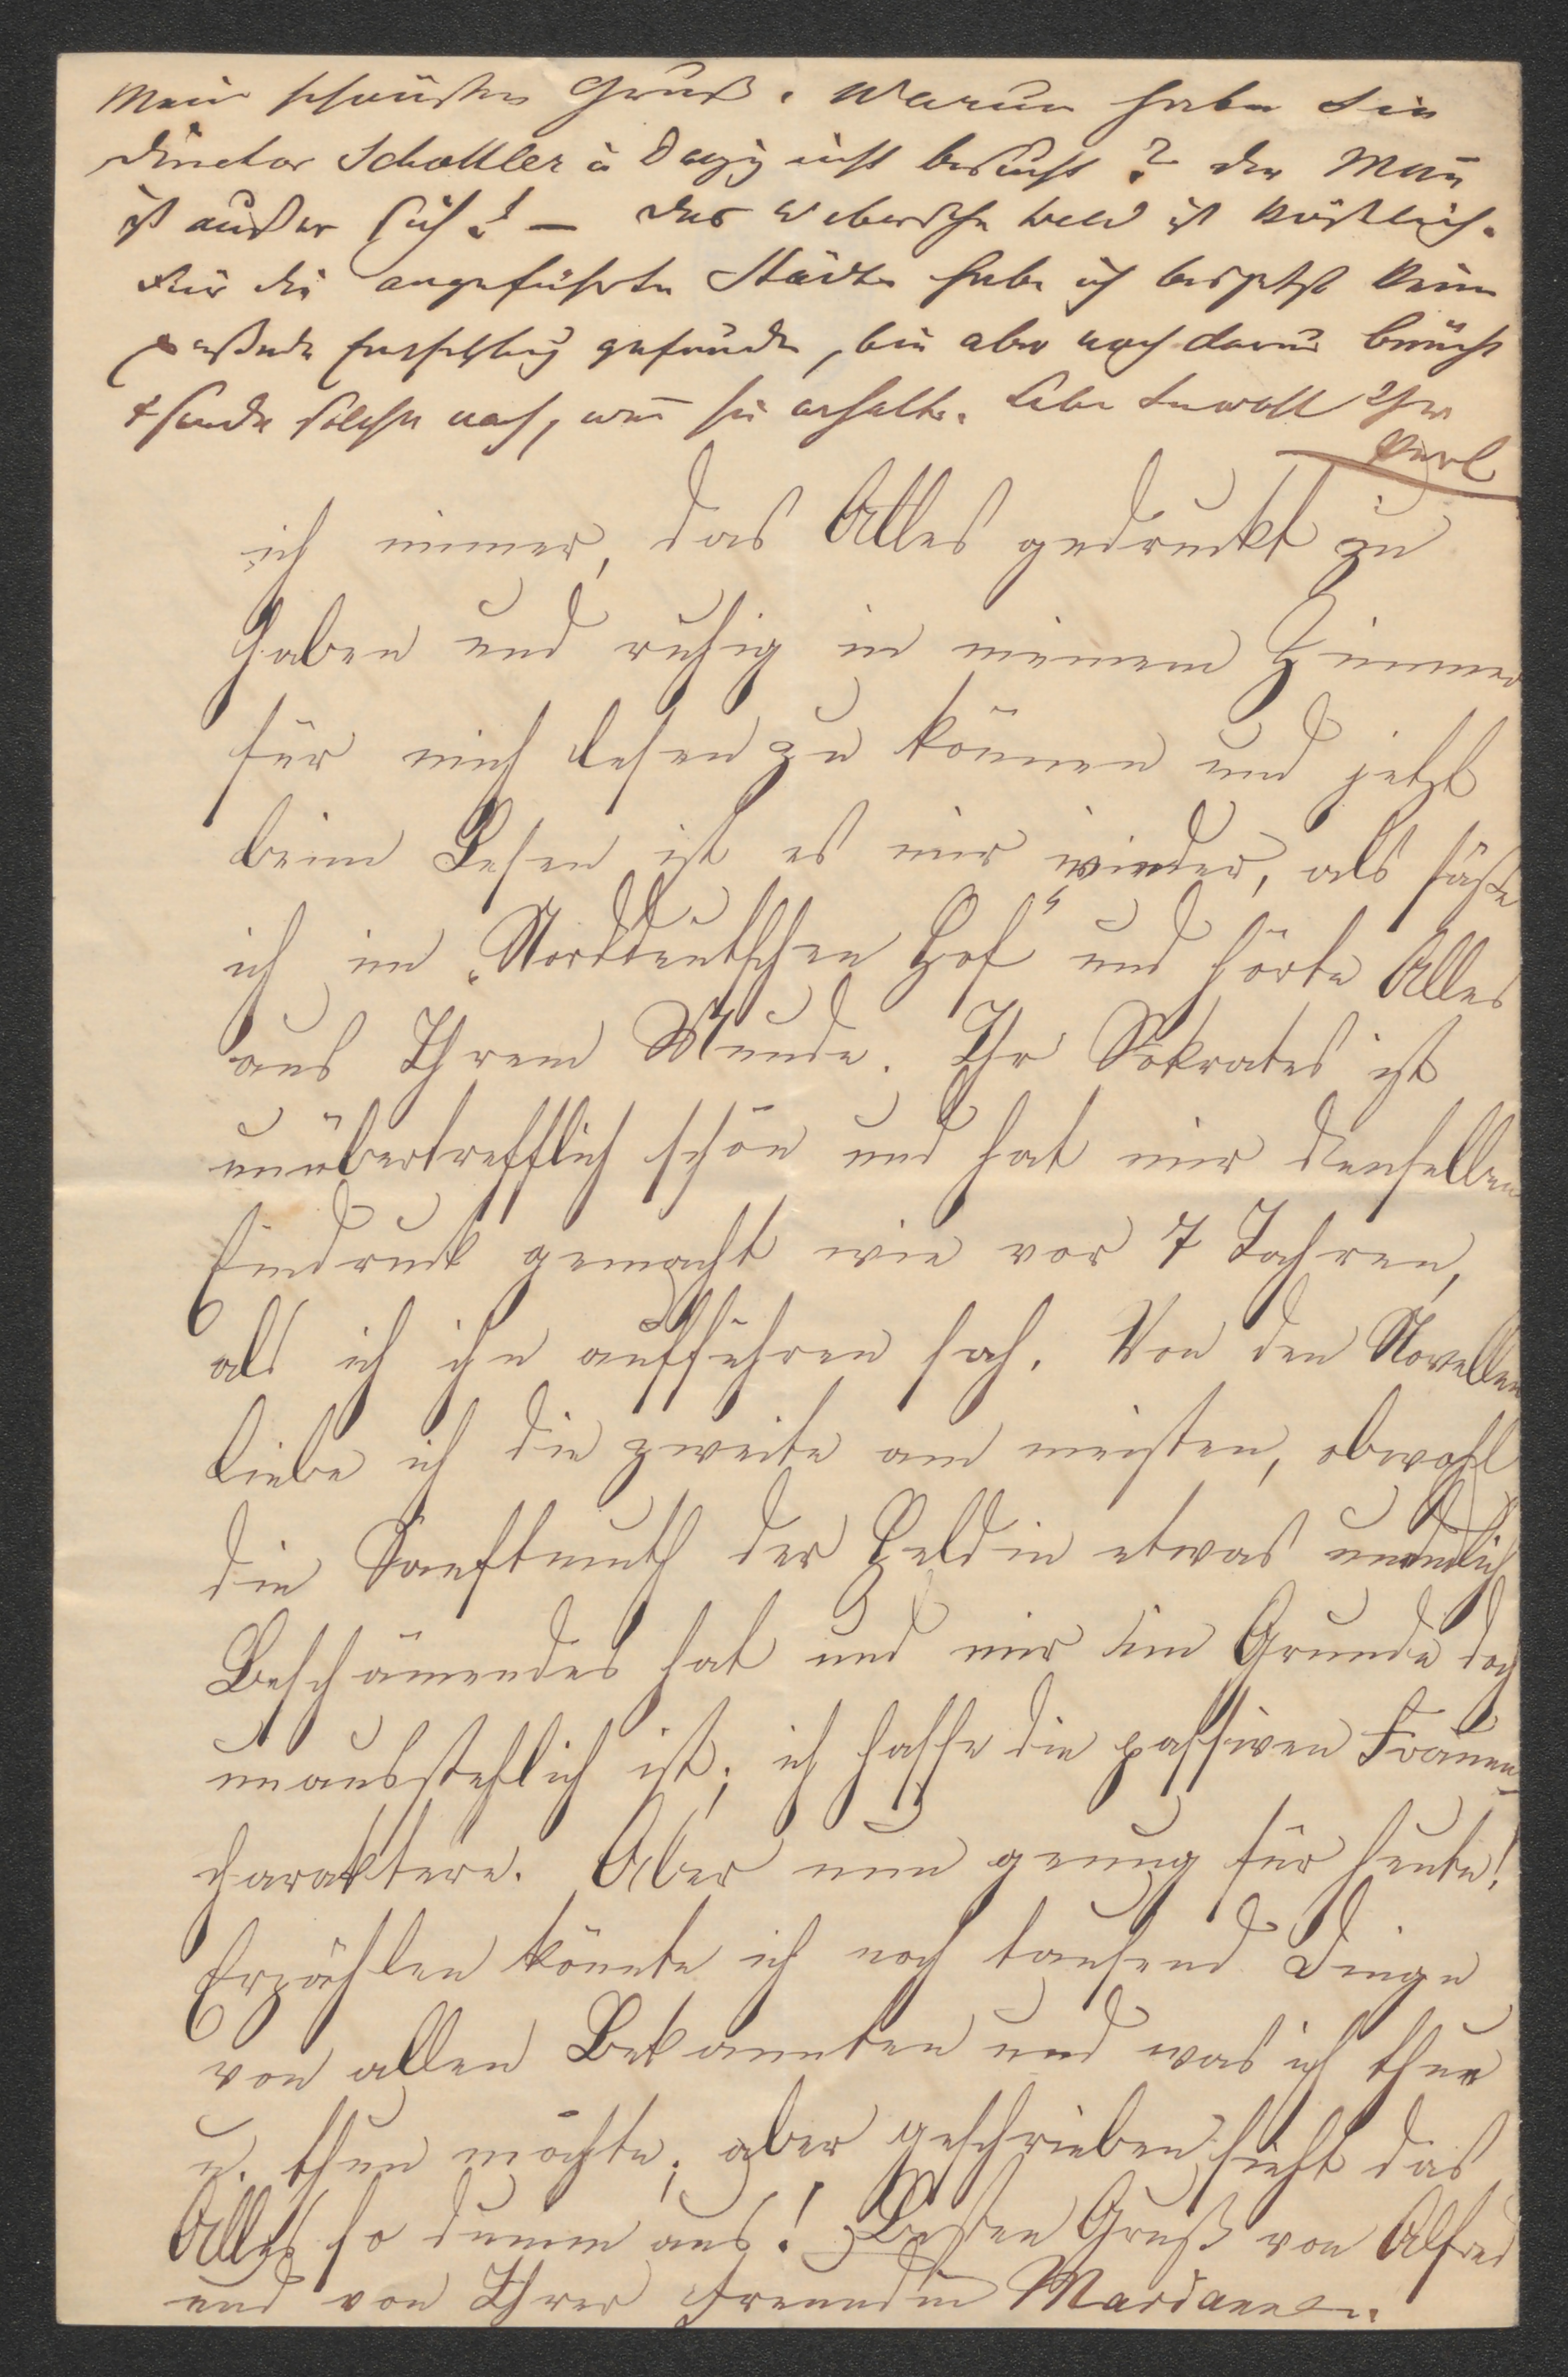 Mein schönster Gruß. Warum haben Sie
Director Schottler i Danzig nicht besucht? Der Mann
ist außer sich! – Das Webersche Bild ist köstlich.
Für die angeführten Städte habe ich bis jetzt keine
passende Empfehlung gefunden, bin aber noch darum bemüht
& sende solche nach, wenn sie erhalte. Leben Sie wohl Ihr
Karl
ich immer, das Alles gedruckt zu
haben und ruhig in meinem Zimmer
für mich lesen zu können und jetzt
beim Lesen ist es mir wieder, als säße
ich im „Norddeutschen Hof" und hörte Alles
aus Ihrem Munde. Ihr Sokrates ist
unübertrefflich schön und hat mir denselben
Eindruck gemacht wie vor 7 Jahren,
als ich ihn aufführen sah. Von den Novellen
liebe ich die zweite am meisten, obwohl
die Sanftmuth der Heldin etwas unendlich
Beschämendes hat und mir im Grunde doch
unausstehlich ist; ich hasse die passiven Frauen-
charaktere. Aber nun genug für heute!
Erzählen könnte ich noch tausend Dinge
von allen Bekannten und was ich thue
u. thun möchte; aber geschrieben sieht das
Alles so dumm aus! Besten Gruß von Alfred
und von Ihrer Freundin Marianne.